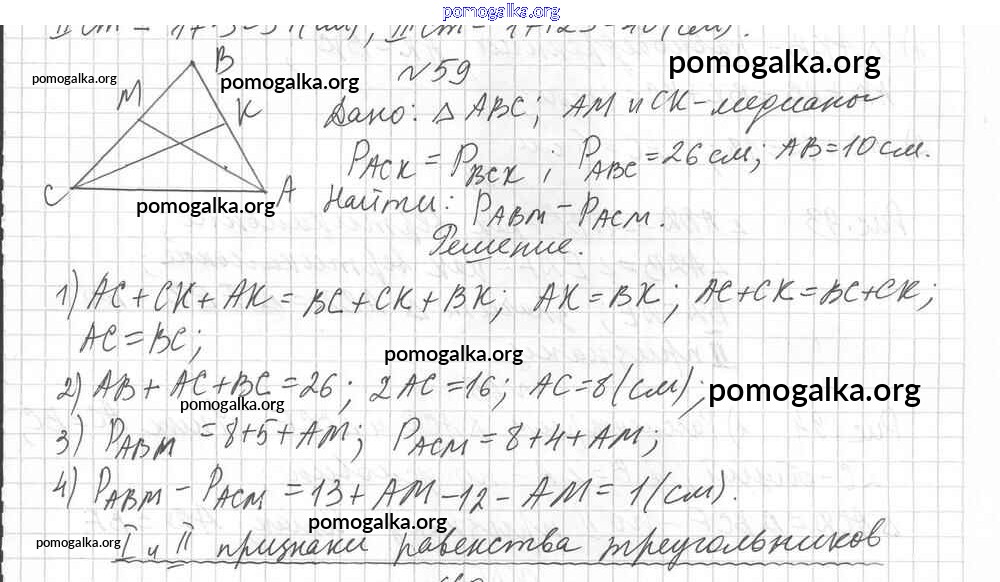 pomogalka.org
II ст = 17+ ... (см), III ст = 17+ ... (см).
pomogalka.org
pomogalka.org
pomogalka.org
B
M
K
C
A
№59
Дано: △ ABC; AM и CK - медианы
P_ACK = P_BCK; P_ABC = 26 см; AB = 10 см.
pomogalka.org
Найти: P_ABM - P_ACM.
Решение.
1) AC + CK + AK = BC + CK + BK; AK = BK; AC + CK = BC + CK;
AC = BC;
pomogalka.org
2) AB + AC + BC = 26; 2AC = 16; AC = 8 (см);
pomogalka.org
pomogalka.org
3) P_ABM = 8+5+AM; P_ACM = 8+4+AM;
4) P_ABM - P_ACM = 13 + AM - 12 - AM = 1 (см).
pomogalka.org
pomogalka.org
I и II признаки равенства треугольников